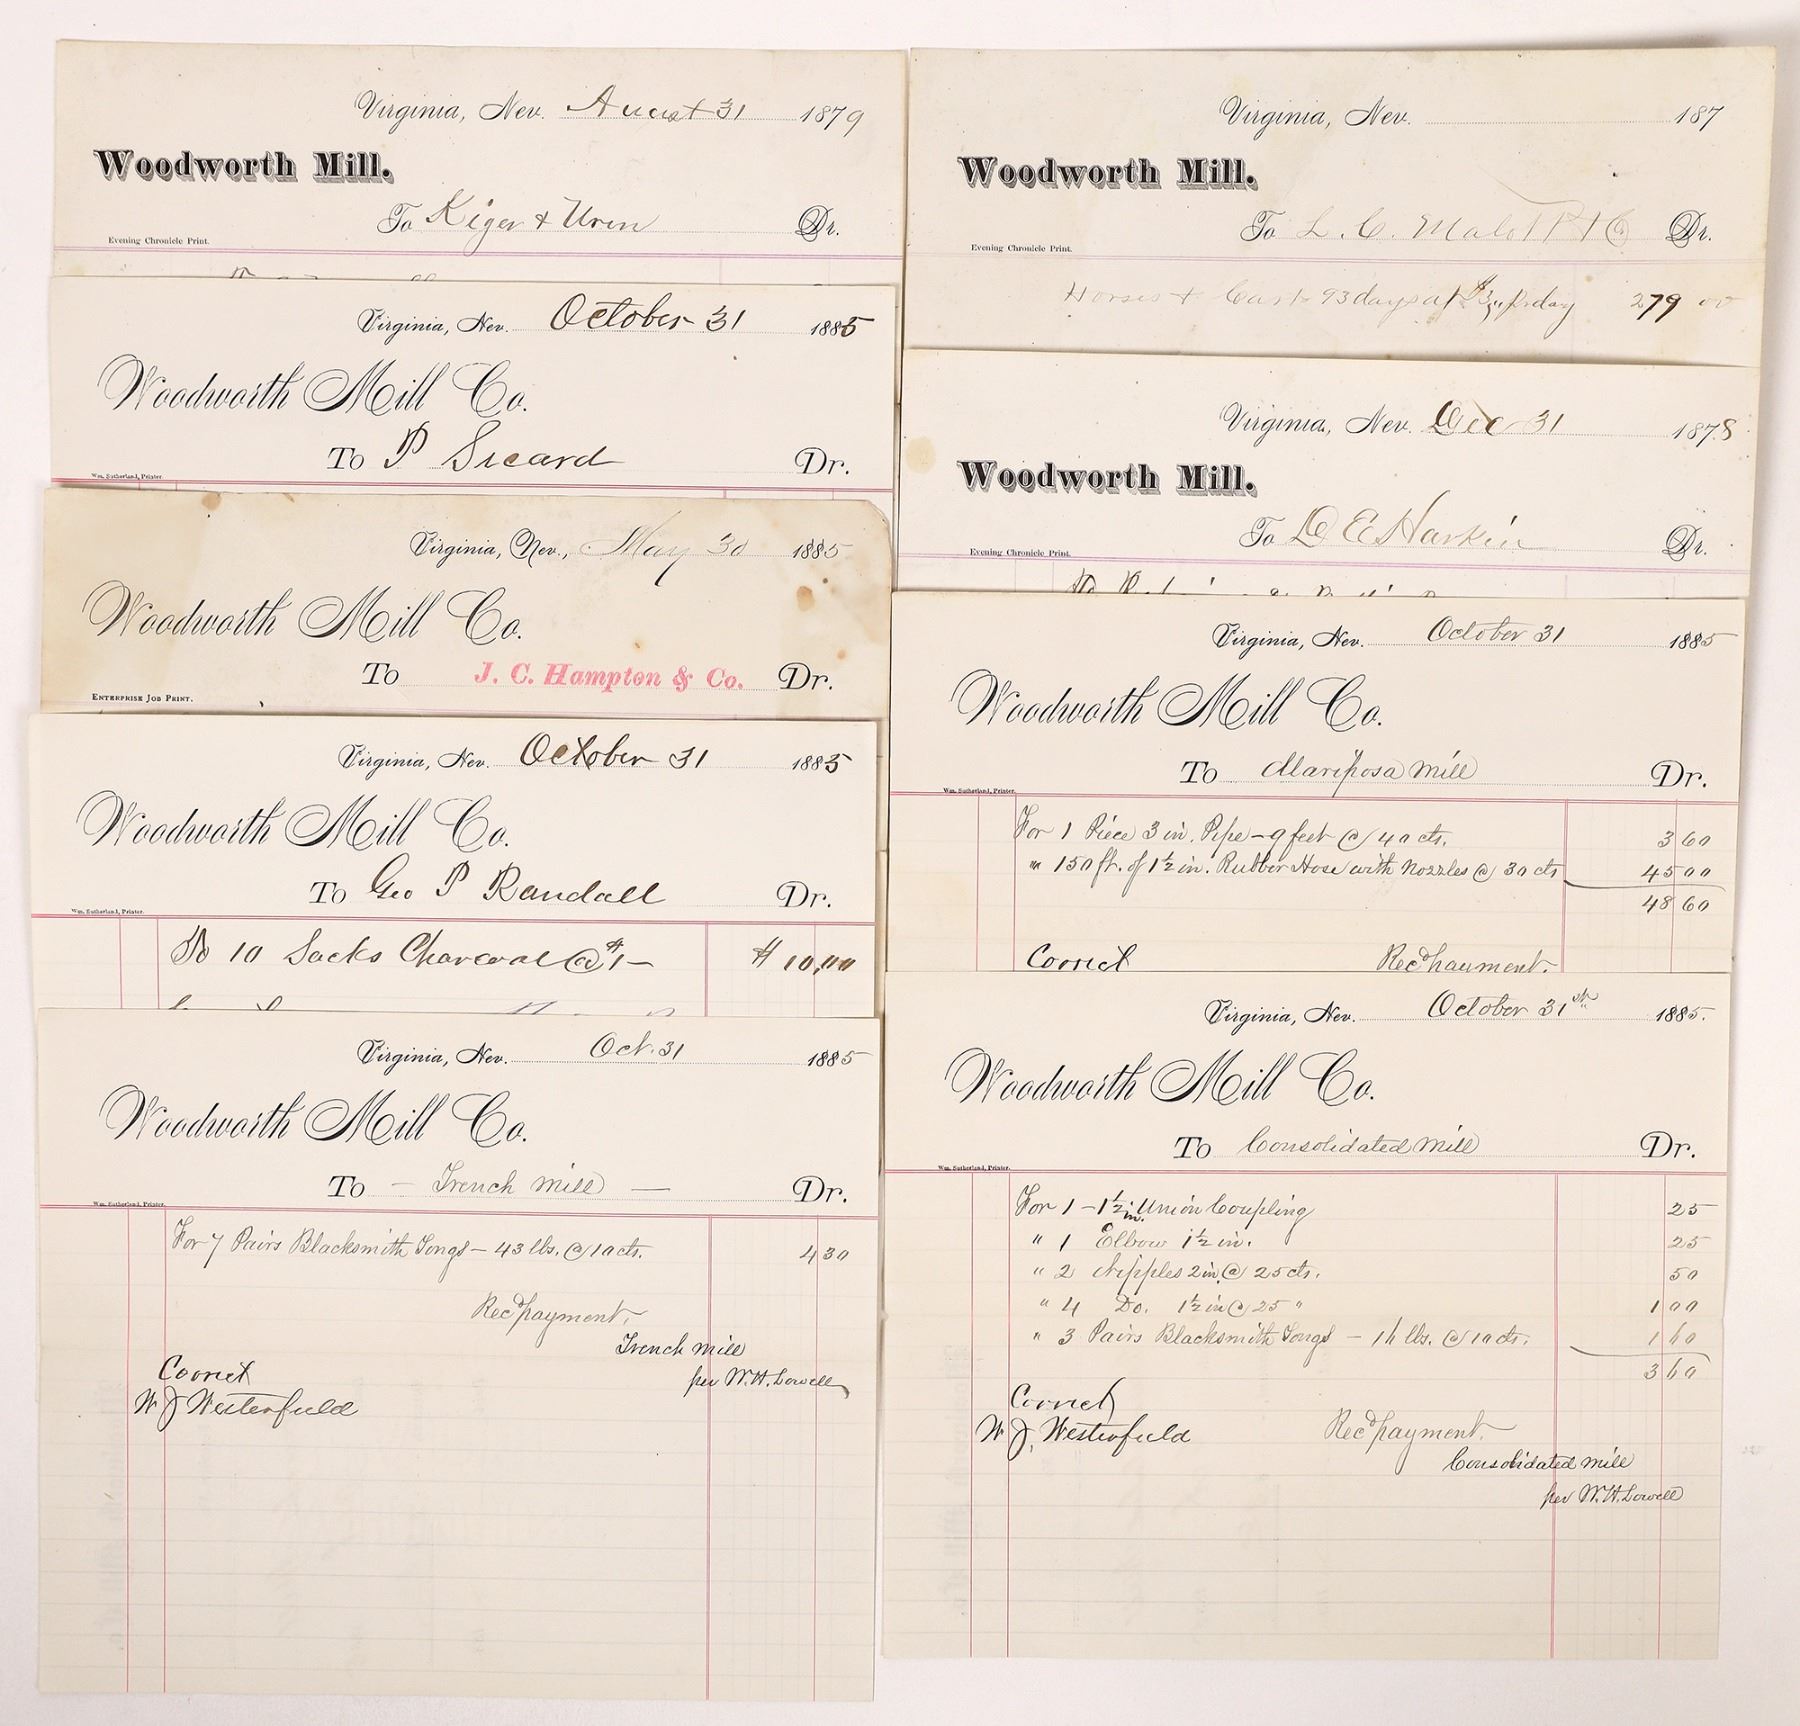 Virginia, Nev. August 31 1879
Woodworth Mill.
To Kiger & Uren Dr.
Evening Chronicle Print.
Virginia, Nev. October 31 1885
Woodworth Mill Co.
To P Sicard Dr.
Wm. Sutherland, Printer.
Virginia, Nev., May 30 1885
Woodworth Mill Co.
To J. C. Hampton & Co. Dr.
ENTERPRISE JOB PRINT.
Virginia, Nev. October 31 1885
Woodworth Mill Co.
To Geo P Randall Dr.
Wm. Sutherland, Printer.
To 10 Sacks Charcoal @ $1— $10,00
Virginia, Nev. Oct. 31 1885
Woodworth Mill Co.
To — French Mill — Dr.
Wm. Sutherland, Printer.
For 7 Pairs Blacksmith Tongs — 43 lbs. @ 10 cts. 4 30
Rec'd payment.
French Mill
per W. H. Lowell
Correct
W J Westerfield
Virginia, Nev. 187
Woodworth Mill.
To L. C. Dr.
Evening Chronicle Print.
Horses & Cart 93 days at $3,, pr day 279 00
Virginia, Nev. Dec 31 1878
Woodworth Mill.
To D E Harkin Dr.
Evening Chronicle Print.
Virginia, Nev. October 31 1885
Woodworth Mill Co.
To Mariposa Mill Dr.
Wm. Sutherland, Printer.
For 1 Piece 3 in. Pipe — 9 feet @ 40 cts. 3 60
" 150 ft. of 1½ in. Rubber Hose with Nozzles @ 30 cts 45 00
48 60
Correct Rec'd payment.
Virginia, Nev. October 31st 1885.
Woodworth Mill Co.
To Consolidated Mill Dr.
Wm. Sutherland, Printer.
For 1 — 1½ in. Union Coupling 25
" 1 Elbow 1½ in. 25
" 2 Nipples 2 in. @ 25 cts. 50
" 4 Do. 1½ in @ 25 " 1 00
" 3 Pairs Blacksmith Tongs — 16 lbs. @ 10 cts. 1 60
3 60
Correct
W. J. Westerfield Rec'd payment.
Consolidated Mill
per W. H. Lowell